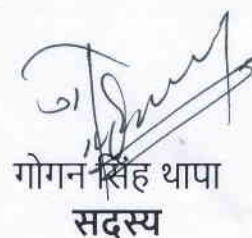 गोगन सिंह थापा
सदस्य